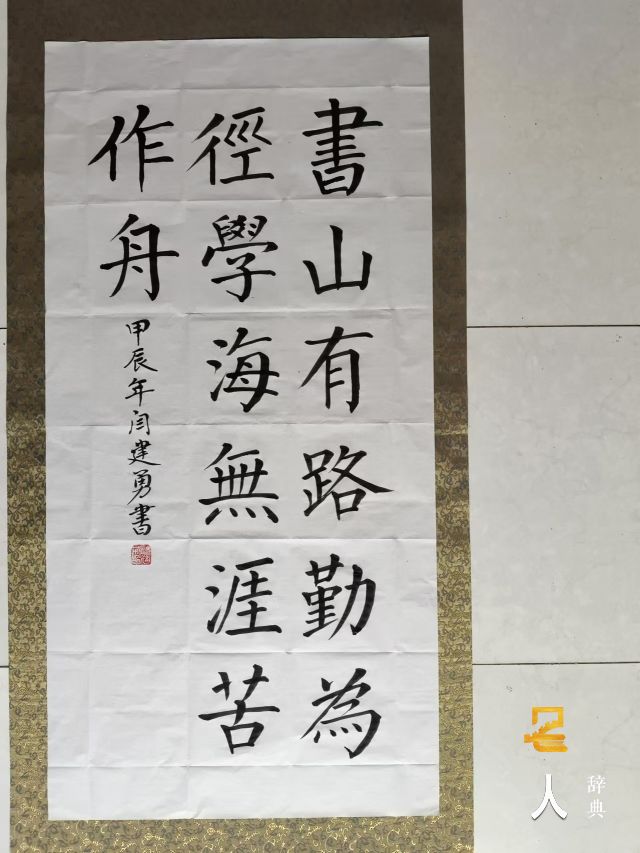 書山有路勤為
徑學海無涯苦
作舟
甲辰年闫建勇書
名人
辞典